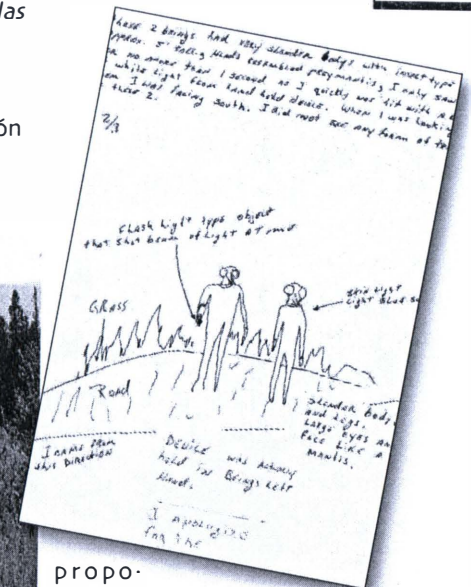 las
ón
these 2 beings had very slender bodys with insect type
5' tall, Heads resembled preymantis, I only saw
no more than 1 second as I quickly was hit with a
white light from hand held device. When I was looking
I was facing south. I did not see any form of
these 2.
2/3
Flash light type object
that shot beam of light AT me
skin tight
light blue
GRASS
ROAD
I came from
this DIRECTION
Device was actually
held in Beings left
Hand.
Slender body,
and legs.
Large eyes an
FACE LIKE A
MANTIS.
I apologize
for the
propo-